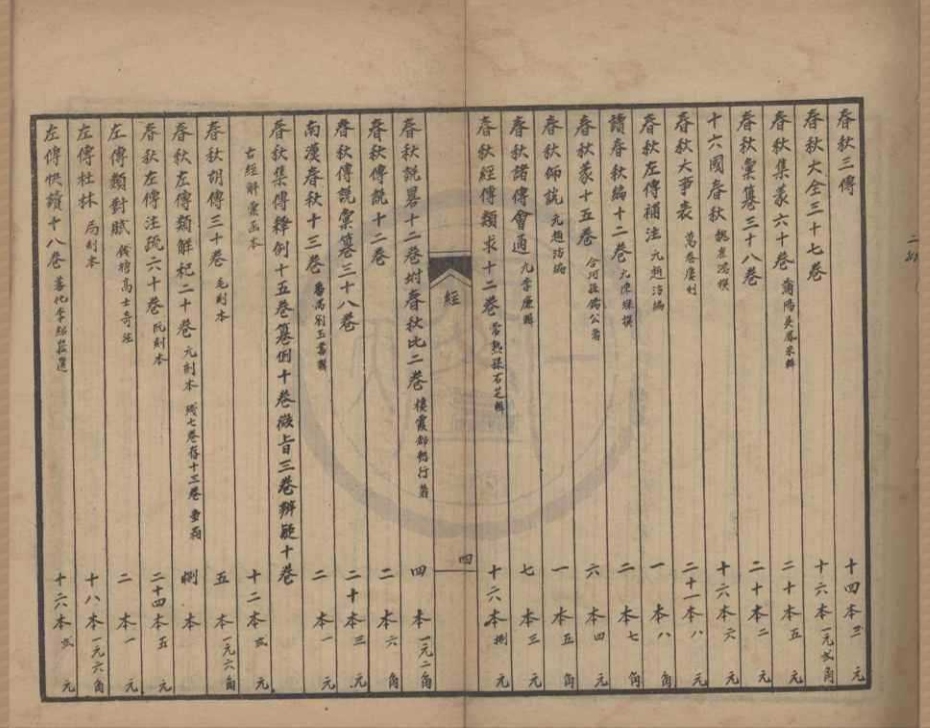 春秋三傳 十四本 三元
春秋大全三十七卷 十六本 一元弍角
春秋集義六十卷 蘭陽吳鳳來輯 二十本 五元
春秋彙纂三十八卷 二十本 二元
十六國春秋 魏崔鴻撰 十六本 六元
春秋大事表 萬卷廔刊 二十一本 八元
春秋左傳補注 元趙汸編 一本 八角
讀春秋編十二卷 元陳深撰 二本 七角
春秋義十五卷 合河孫嘉公著 六本 四元
春秋師說 元趙汸編 一本 五角
春秋諸傳會通 元李廉輯 七本 三元
春秋經傳類求十二卷 常熟孫石芝輯 十六本 捌元
經
四
春秋說畧十二卷坿春秋比二卷 棲霞郝懿行著 四本 一元二角
春秋傳說十二卷 二本 六角
春秋傳說彙纂三十八卷 二十本 三元
南漢春秋十三卷 番禺劉玉書輯 二本 一元
春秋集傳釋例十五卷纂例十卷微旨三卷辨疑十卷
古經解彙函本 十二本 弍元
春秋胡傳三十卷 毛刻本 五本 一元六角
春秋左傳類解杞二十卷 元刻本 殘七卷存十三卷 壹函 捌本
春秋左傳注疏六十卷 阮刻本 二十四本 五元
左傳類對賦 錢塘高士奇注 二本 一元
左傳杜林 局刻本 十八本 一元六角
左傳快讀十八卷 善化李紹崧選 十六本 弍元